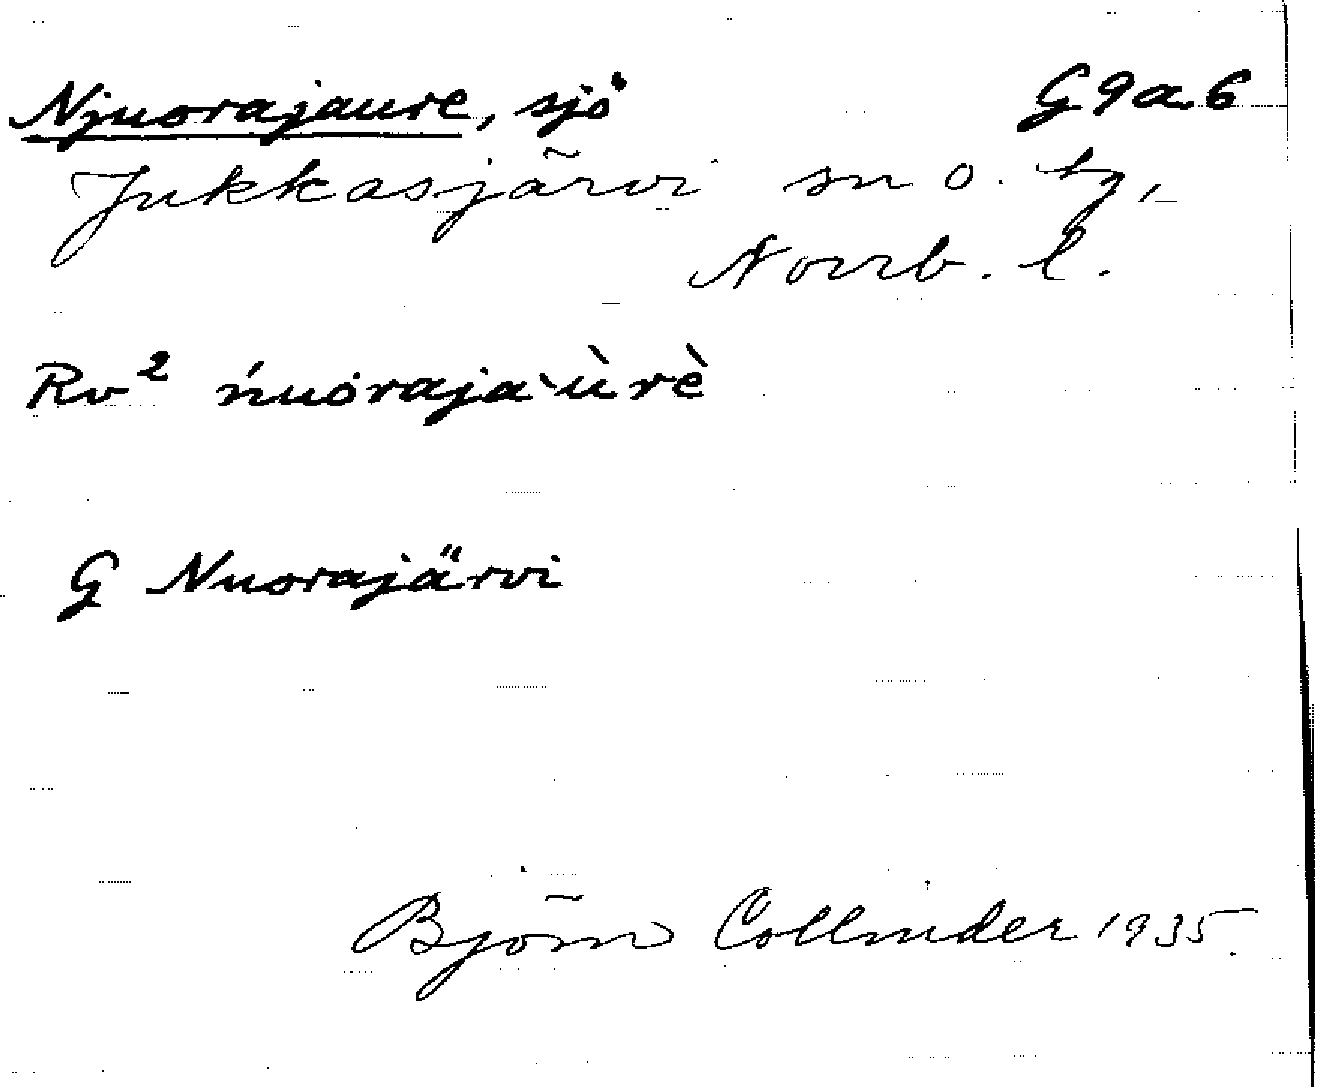 Njuorajaure, sjö G9a6
Jukkasjärvi sn o. tg,
Norrb. l.
Rv² ńuȯrajaˋùrè
G Nuorajärvi
Björn Collinder 1935.